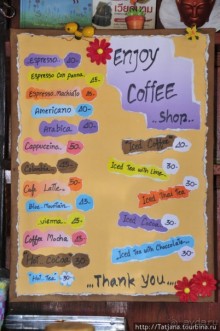 เวียดนาม
Enjoy
Coffee
Shop...
Espresso 40.-
Espresso Con panna 45.-
Espresso Machiato 45.-
Americano 40.-
Arabica
Cappuccino 50.-
Colombia
Cafe Latte
Blue Mountain
Vienna 45.-
Coffee Mocha
Hot CoCoa
"Hot Tea" 30.-
Iced Coffee
Iced Tea with Lime
30.-
Iced Thai Tea
Iced Cocoa 50.-
Iced Tea with Chocolate
50.-
...Thank you....
http://Tatjana.tourbina.ru